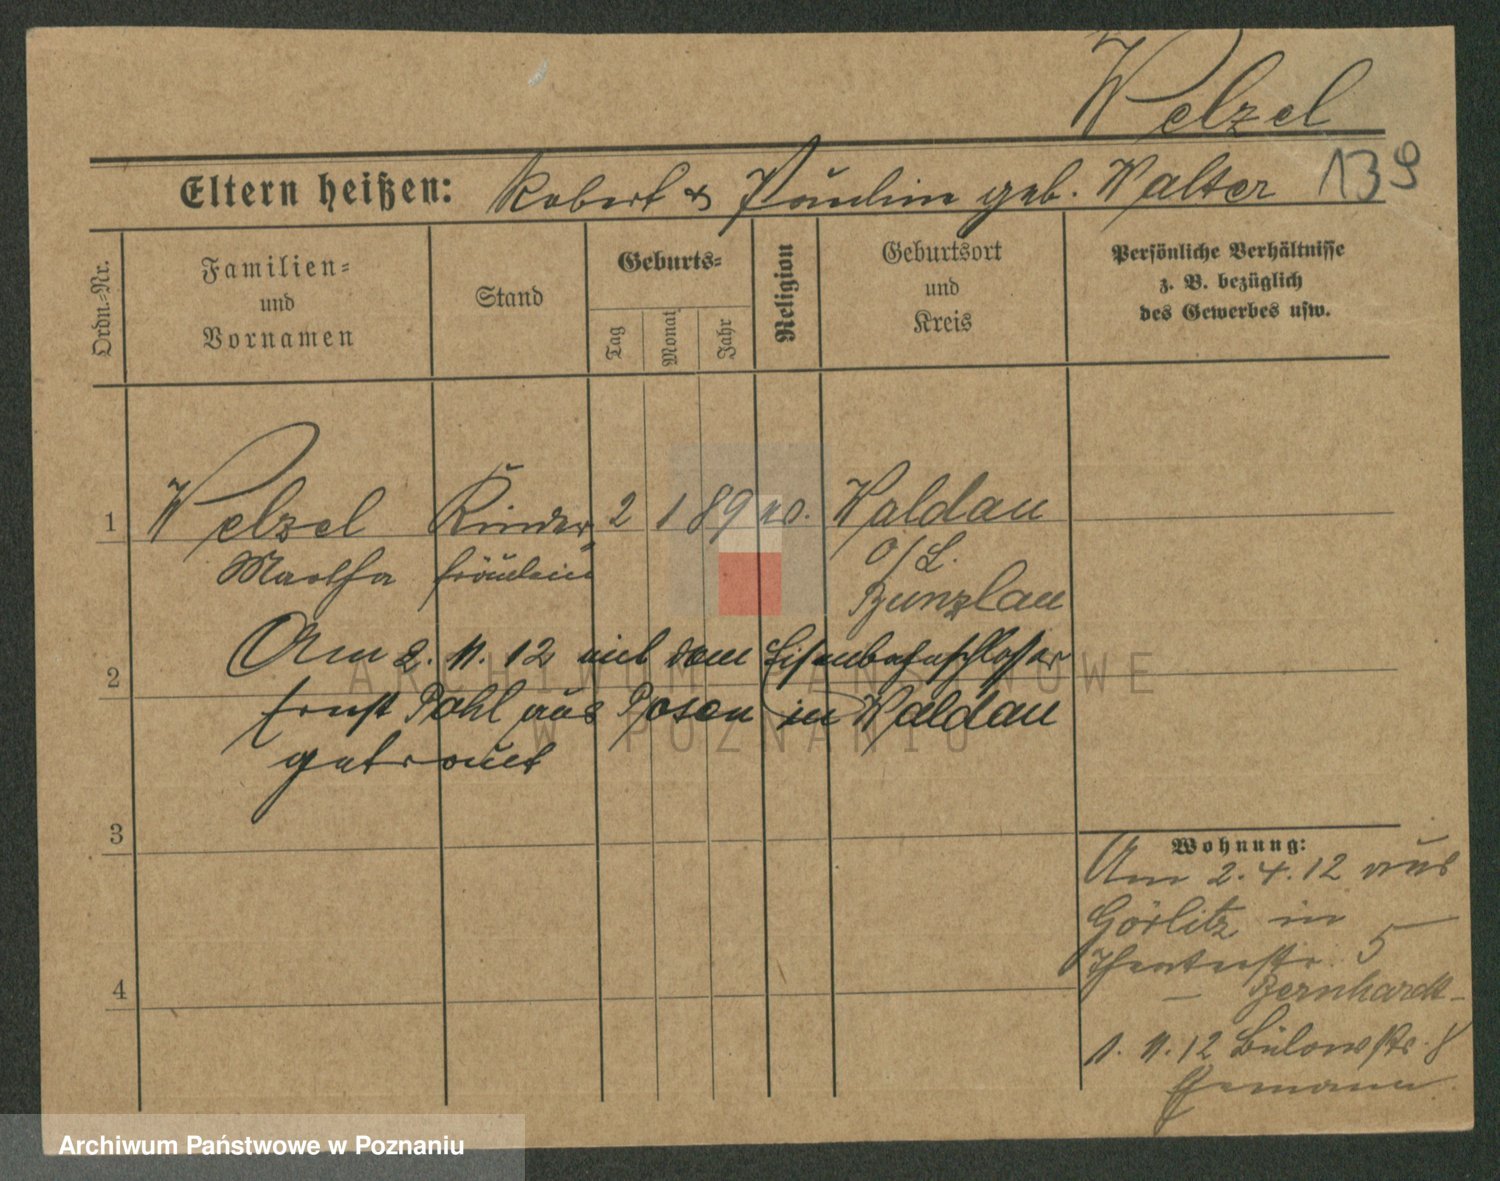 Welzel
Eltern heißen: Robert & Pauline geb. Walter 139
Ordn.=Nr.
Familien=
und
Vornamen
Stand
Geburts=
Tag
Monat
Jahr
Religion
Geburtsort
und
Kreis
Persönliche Verhältnisse
z. B. bezüglich
des Gewerbes usw.
1 Welzel Kinder= 2 1 89 ev. Waldau
Martha fräulein O/L.
Bunzlau
Am 2. 11. 12 mit dem Eisenbahnschlosser
2
Ernst Pohl aus Posen in Waldau
getraut
3
4
Wohnung:
Am 2.4.12 aus
Görlitz in
Theaterstr. 5
Bernhardt
1. 11. 12 Bülowstr. 8
Ehemann
ARCHIWUM PAŃSTWOWE
W POZNANIU
Archiwum Państwowe w Poznaniu